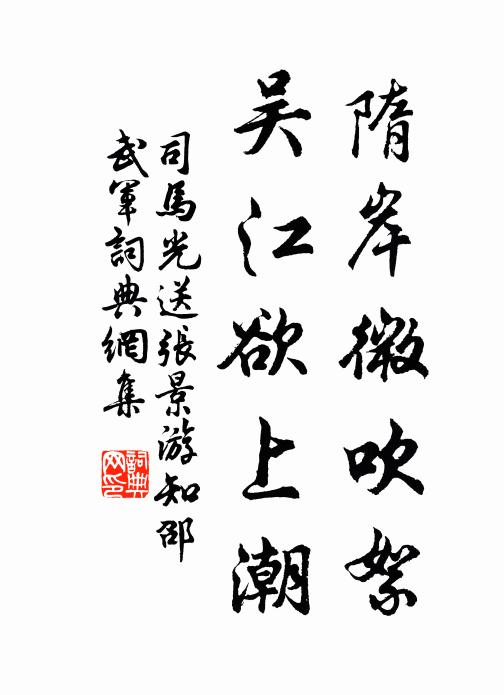 隋岸微吹絮
吴江欲上潮
司馬光送張景游知邵
武軍詞典網集
詞典
网印